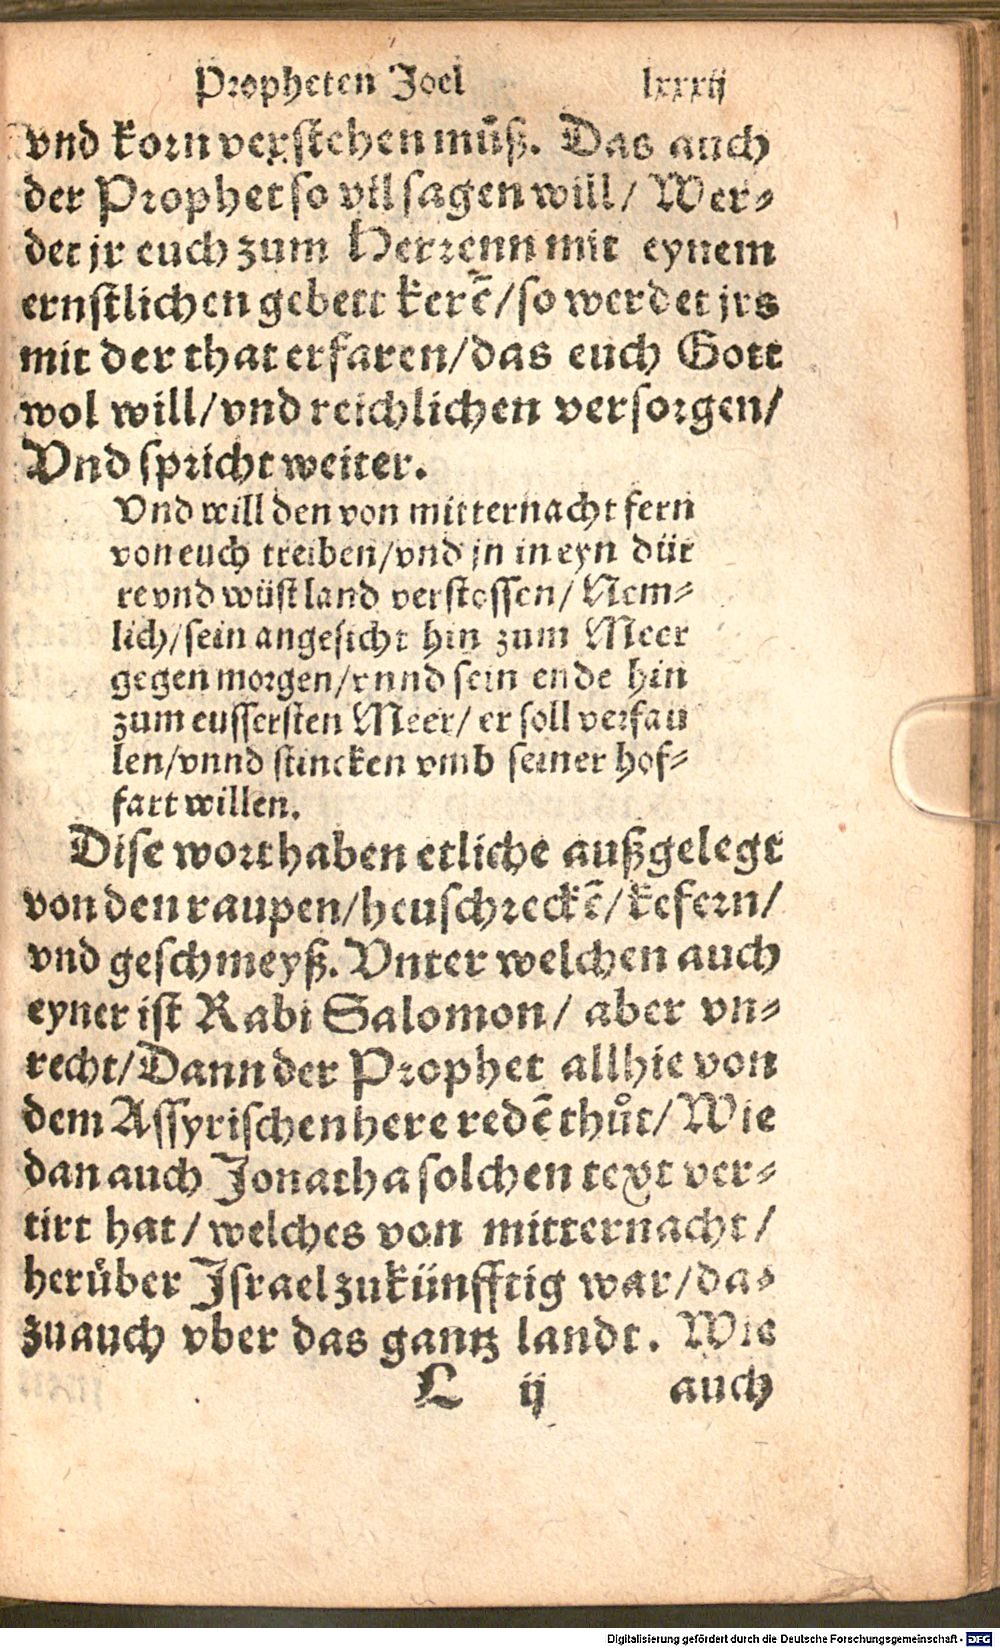 Propheten Joel lxxxij
vnd korn verstehen müß. Das auch
der Prophet so vil sagen will/ Wer⸗
det jr euch zum Herrenn mit eynem
ernstlichen gebett kerẽ/so werdet jrs
mit der that erfaren/das euch Gott
wol will/vnd reichlichen versorgen/
Vnd spricht weiter.
Vnd will den von mitternacht fern
von euch treiben/vnd jn in eyn dür
re vnd wüst land verstossen/ Nem⸗
lich/sein angesicht hin zum Meer
gegen morgen/vnnd sein ende hin
zum eussersten Meer/ er soll verfau
len/vnnd stincken vmb seiner hof⸗
fart willen.
Dise wort haben etliche außgelegt
von den raupen/heuschreckẽ/kefern/
vnd geschmeyß. Vnter welchen auch
eyner ist Rabi Salomon/ aber vn⸗
recht/Dann der Prophet allhie von
dem Assyrischen here redẽ thůt/ Wie
dan auch Jonatha solchen text ver⸗
tirt hat/welches von mitternacht/
herůber Israel zukünfftig war/da⸗
zu auch vber das gantz landt. Wie
L ij auch
Digitalisierung gefördert durch die Deutsche Forschungsgemeinschaft - DFG